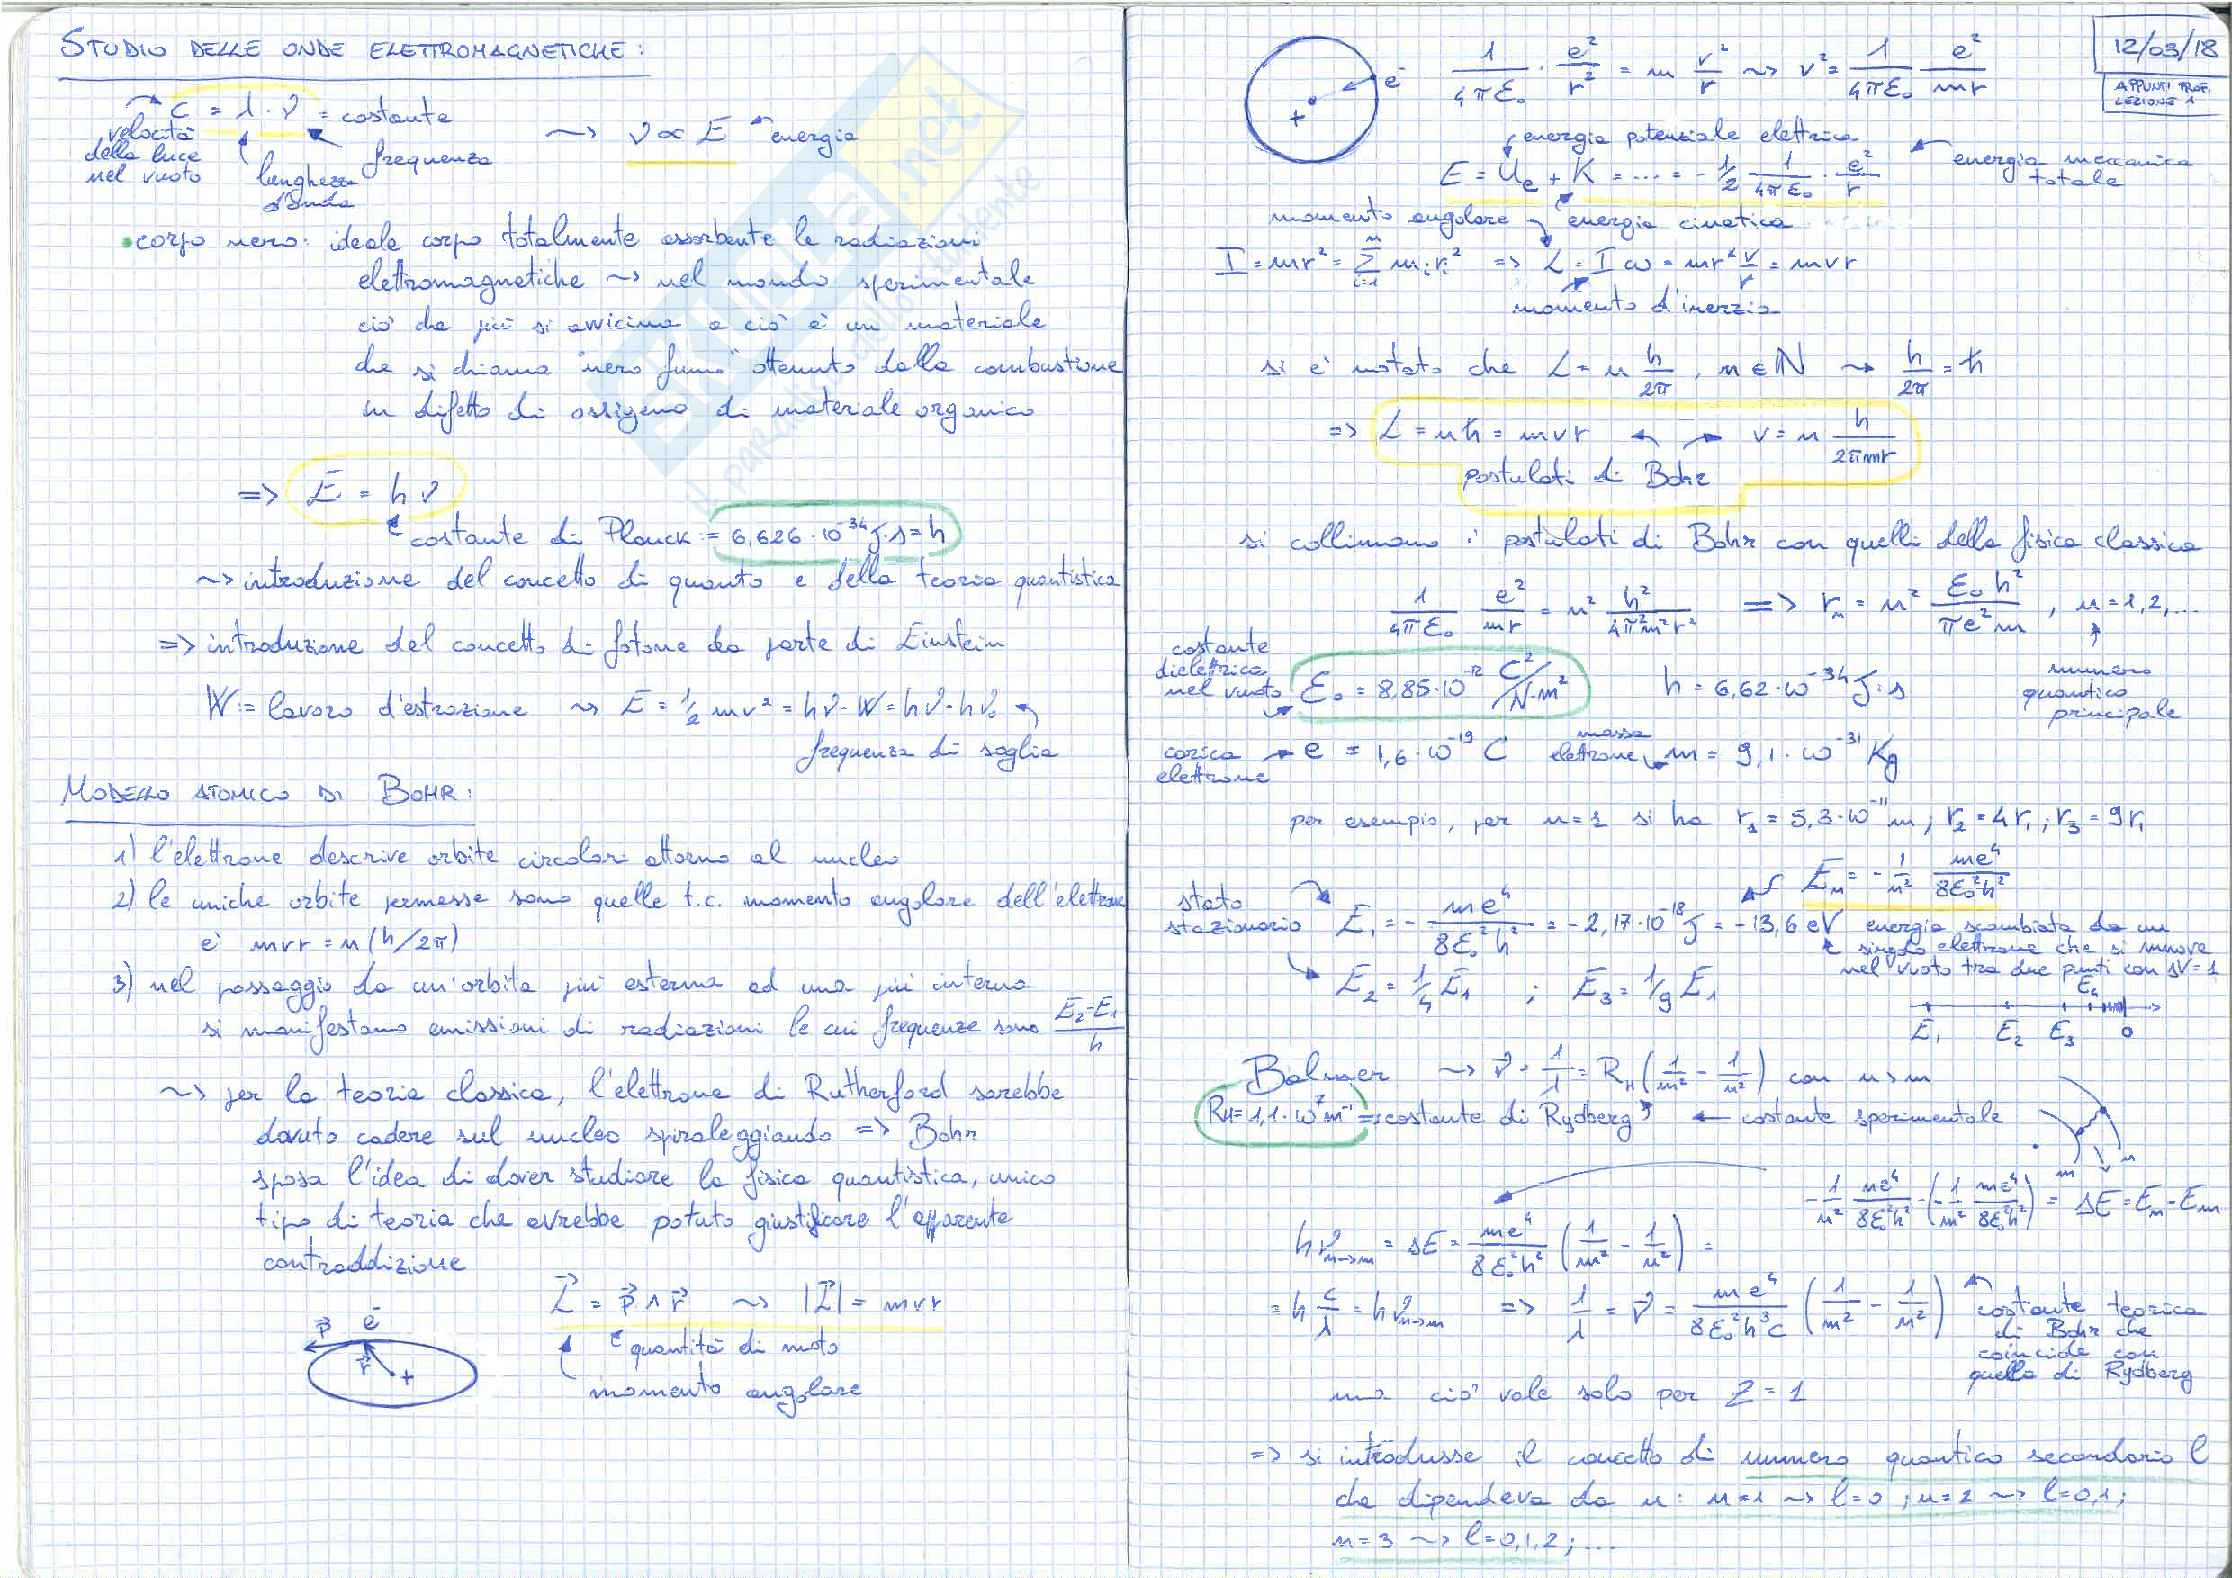 STUDIO DELLE ONDE ELETTROMAGNETICHE:
c = λ · ν = costante
velocità della luce nel vuoto
lunghezza d'onda
frequenza
~> ν ∝ E energia
• corpo nero: ideale corpo totalmente assorbente le radiazioni
elettromagnetiche ~> nel mondo sperimentale
ciò che più si avvicina a ciò è un materiale
che si chiama "nero fumo" ottenuto dalla combustione
in difetto di ossigeno di materiale organico
=> E = hν
costante di Planck := 6,626·10⁻³⁴ J·s = h
~> introduzione del concetto di quanto e della teoria quantistica
=> introduzione del concetto di fotone da parte di Einstein
W := lavoro d'estrazione ~> E = ½ mv² = hν - W = hν - hν₀
frequenza di soglia
MODELLO ATOMICO DI BOHR:
1) l'elettrone descrive orbite circolari attorno al nucleo
2) le uniche orbite permesse sono quelle t.c. momento angolare dell'elettrone
è mvr = n(h/2π)
3) nel passaggio da un'orbita più esterna ad una più interna
si manifestano emissioni di radiazioni le cui frequenze sono (E₂-E₁)/h
~> per la teoria classica, l'elettrone di Rutherford sarebbe
dovuto cadere sul nucleo spiraleggiando => Bohr
sposa l'idea di dover studiare la fisica quantistica, unico
tipo di teoria che avrebbe potuto giustificare l'apparente
contraddizione
L⃗ = p⃗ ∧ r⃗ ~> |L⃗| = mvr
quantità di moto
momento angolare
p⃗ e⁻ r⃗ +
12/03/18
APPUNTI PROF.
LEZIONE 1
e⁻ +
1/(4πε₀) · e²/r² = m v²/r ~> v² = 1/(4πε₀) e²/(mr)
energia potenziale elettrica
E = Uₑ + K = .... = -½ 1/(4πε₀) · e²/r
energia meccanica totale
momento angolare energia cinetica
I = mr² = Σ mᵢrᵢ² => L = Iω = mr² v/r = mvr
momento d'inerzia
si è notato che L = n h/2π, n ∈ ℕ ~> h/2π = ħ
=> L = nħ = mvr v = n h/(2πmr)
postulati di Bohr
si collimano i postulati di Bohr con quelli della fisica classica
1/(4πε₀) e²/(mr) = n² h²/(4π²m²r²) => rₙ = n² ε₀h²/(πe²m), n = 1,2,...
costante dielettrica nel vuoto ε₀ = 8,85·10⁻¹² C²/N·m² h = 6,62·10⁻³⁴ J·s
numero quantico principale
carica elettrone e = 1,6·10⁻¹⁹ C massa elettrone m = 9,1·10⁻³¹ Kg
per esempio, per n=1 si ha r₁ = 5,3·10⁻¹¹ m; r₂ = 4r₁; r₃ = 9r₁
Eₙ = -1/n² me⁴/(8ε₀²h²)
stato stazionario E₁ = - me⁴/(8ε₀²h²) = -2,17·10⁻¹⁸ J = -13,6 eV
energia scambiata da un
singolo elettrone che si muove
nel vuoto tra due punti con ΔV=1
E₂ = ¼ E₁ ; E₃ = 1/9 E₁
E₁ E₂ E₃ E₄ 0
Balmer ~> ν̄ = 1/λ = R_H (1/m² - 1/n²) con n>m
R_H = 1,1·10⁷ m⁻¹ =: costante di Rydberg ← costante sperimentale
m n
-1/n² me⁴/(8ε₀²h²) - (-1/m² me⁴/(8ε₀²h²)) = ΔE = Eₙ - Eₘ
hνₙ→ₘ = ΔE = me⁴/(8ε₀²h²) (1/m² - 1/n²) =
= h c/λ = hνₙ→ₘ => 1/λ = ν̄ = me⁴/(8ε₀²h³c) (1/m² - 1/n²)
costante teorica
di Bohr che
coincide con
quella di Rydberg
ma ciò vale solo per Z = 1
=> si introdusse il concetto di numero quantico secondario l
che dipendeva da n: n=1 ~> l=0; n=2 ~> l=0,1;
n=3 ~> l=0,1,2; ...